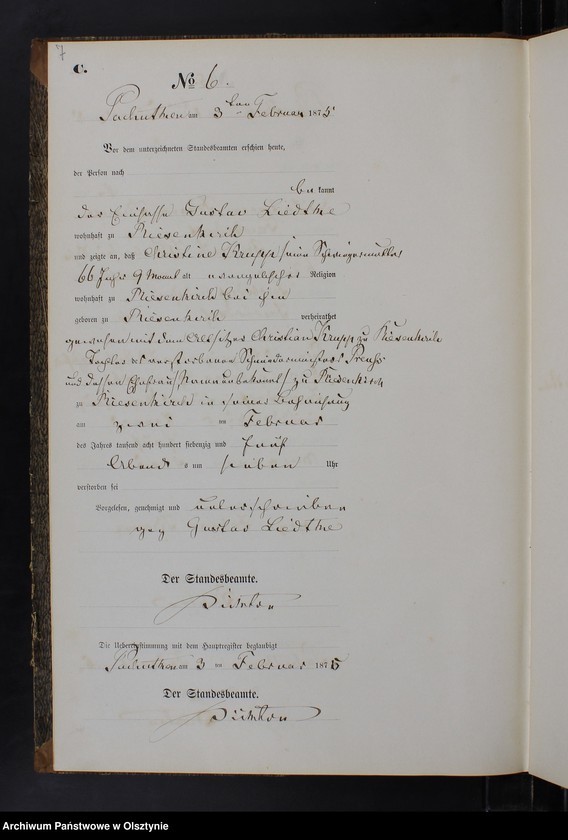 7
C.
No 6.
am 3ten Februar 1875
Vor dem unterzeichneten Standesbeamten erschien heute,
der Person nach
bekannt
der Einsasse Gustav Liedtke
wohnhaft zu Riesenkirch
und zeigte an, daß Christine Krupp, seine Schwiegermutter
66 Jahr 9 Monat alt evangelischer Religion
wohnhaft zu Riesenkirch bei ihm
geboren zu Riesenkirch verheirathet
gewesen mit dem Altsitzer Christian Krupp zu Riesenkirch
Tochter des verstorbenen Schneidermeisters Preuß
und dessen Ehefrau, Namen unbekannt, zu Riesenkirch
zu Riesenkirch in seiner Behausung
am zwei ten Februar
des Jahres tausend acht hundert siebenzig und fünf
Abends um sieben Uhr
verstorben sei
Vorgelesen, genehmigt und unterschrieben
gez Gustav Liedtke
Der Standesbeamte.
Die Uebereinstimmung mit dem Hauptregister beglaubigt
am 3 ten Februar 1875
Der Standesbeamte.
Archiwum Państwowe w Olsztynie